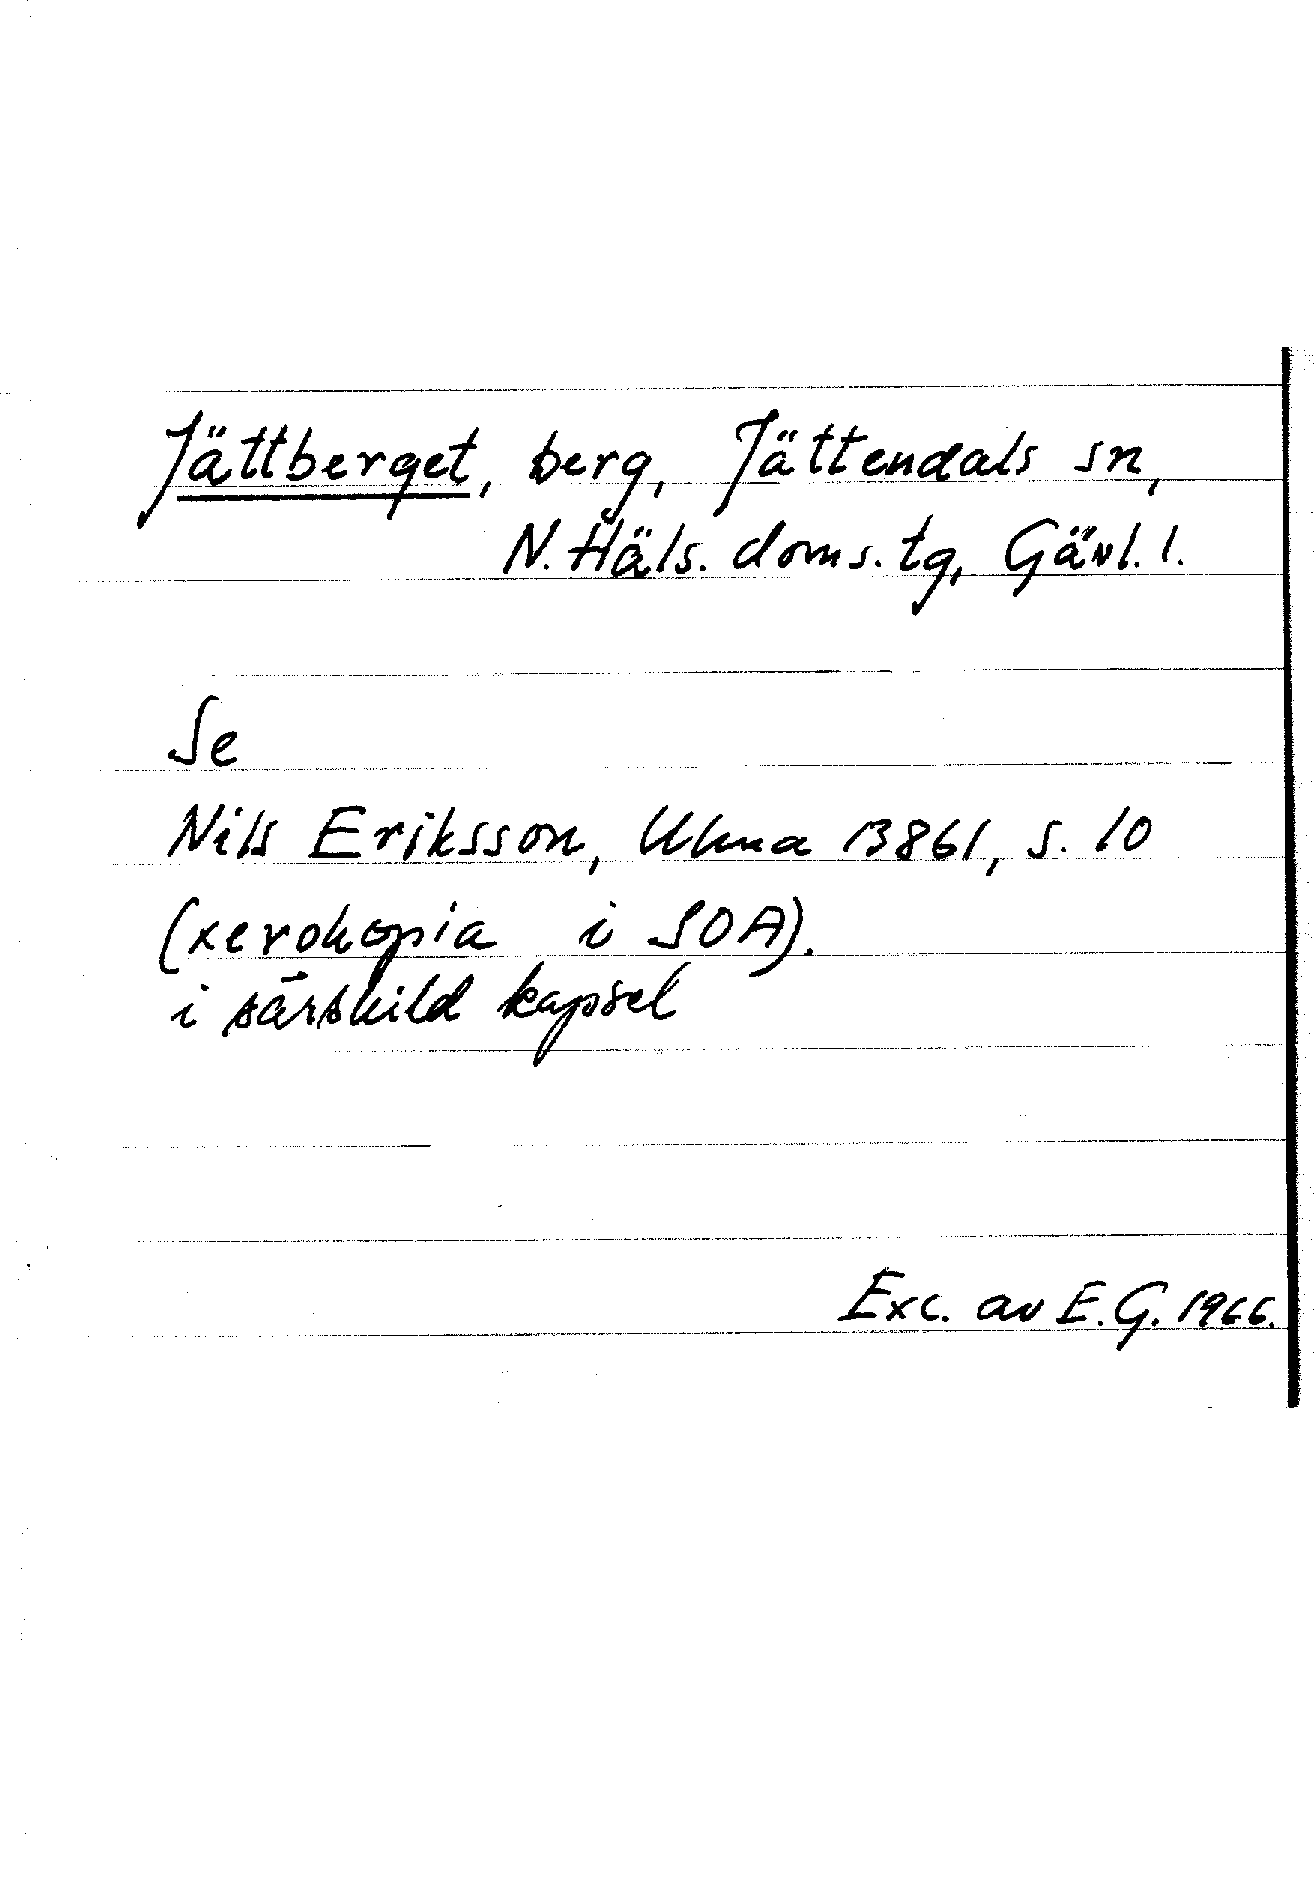 Jättberget, berg, Jättendals sn,
N. Häls. doms. tg, Gävl. l.
Se
Nils Eriksson, Ulma 13861, s. 10
(xerokopia i SOA).
i särskild kapsel
Exc. av E.G. 1966.